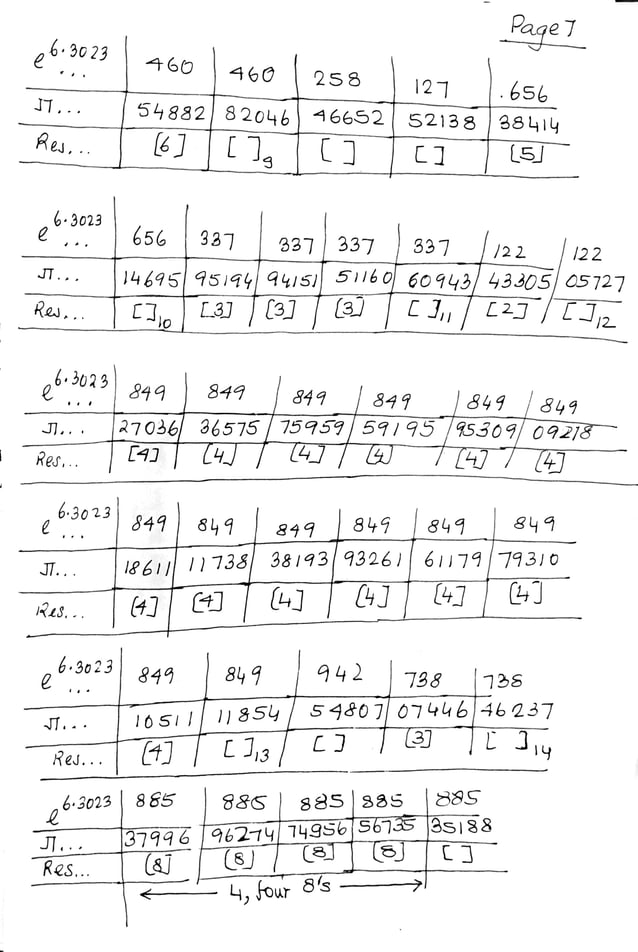 Page 7
e^6.3023 ... 460 460 258 127 .656
π... 54882 82046 46652 52138 38414
Res... [6] [ ]9 [ ] [ ] [5]
e^6.3023 ... 656 337 337 337 337 122 122
π... 14695 95194 94151 51160 60943 43305 05727
Res... [ ]10 [3] [3] [3] [ ]11 [2] [ ]12
e^6.3023 ... 849 849 849 849 849 849
π... 27036 36575 75959 59195 95309 09218
Res... [4] [4] [4] [4] [4] [4]
e^6.3023 ... 849 849 849 849 849 849
π... 18611 11738 38193 93261 61179 79310
Res... [4] [4] [4] [4] [4] [4]
e^6.3023 ... 849 849 942 738 738
π... 10511 11854 54807 07446 46237
Res... [4] [ ]13 [ ] [3] [ ]14
e^6.3023 885 885 885 885 885
π... 37996 96274 74956 56735 35188
Res... [8] [8] [8] [8] [ ]
← 4, four 8's →